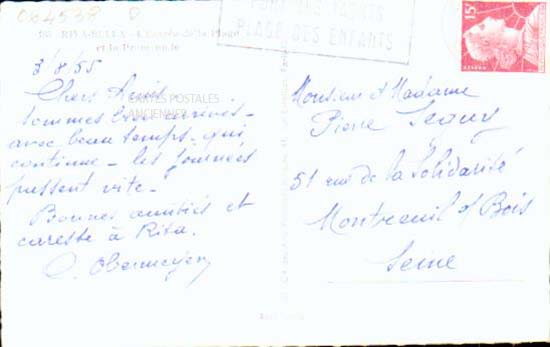 RIVA-BELLA - L'Entrée de la Plage
et la Promenade
PORT DES YACHTS
PLAGE DES ENFANTS
15F
3/8/55
Chers Amis
CARTES POSTALES
ANCIENNES
sommes bien arrivés -
avec beau temps - qui
continue - les journées
passent vite -
Bonnes amitiés et
caresse à Rita.
Obermeyer
Monsieur et Madame
Pierre
51 rue de la Solidarité
Montreuil s/ Bois
Seine